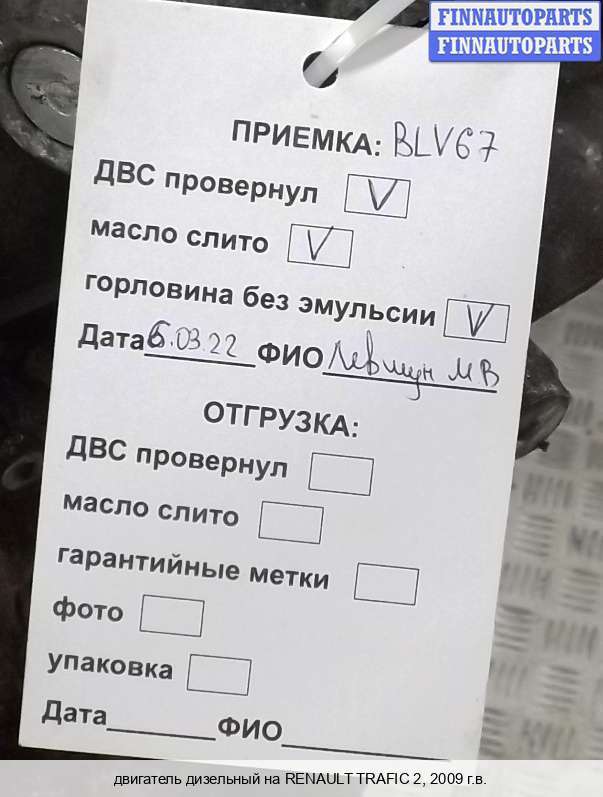 FINNAUTOPARTS
FINNAUTOPARTS
ПРИЕМКА: BLV67
ДВС провернул V
масло слито V
горловина без эмульсии V
Дата 6.03.22 ФИО Левшун М В
ОТГРУЗКА:
ДВС провернул
масло слито
гарантийные метки
фото
упаковка
Дата ФИО
двигатель дизельный на RENAULT TRAFIC 2, 2009 г.в.